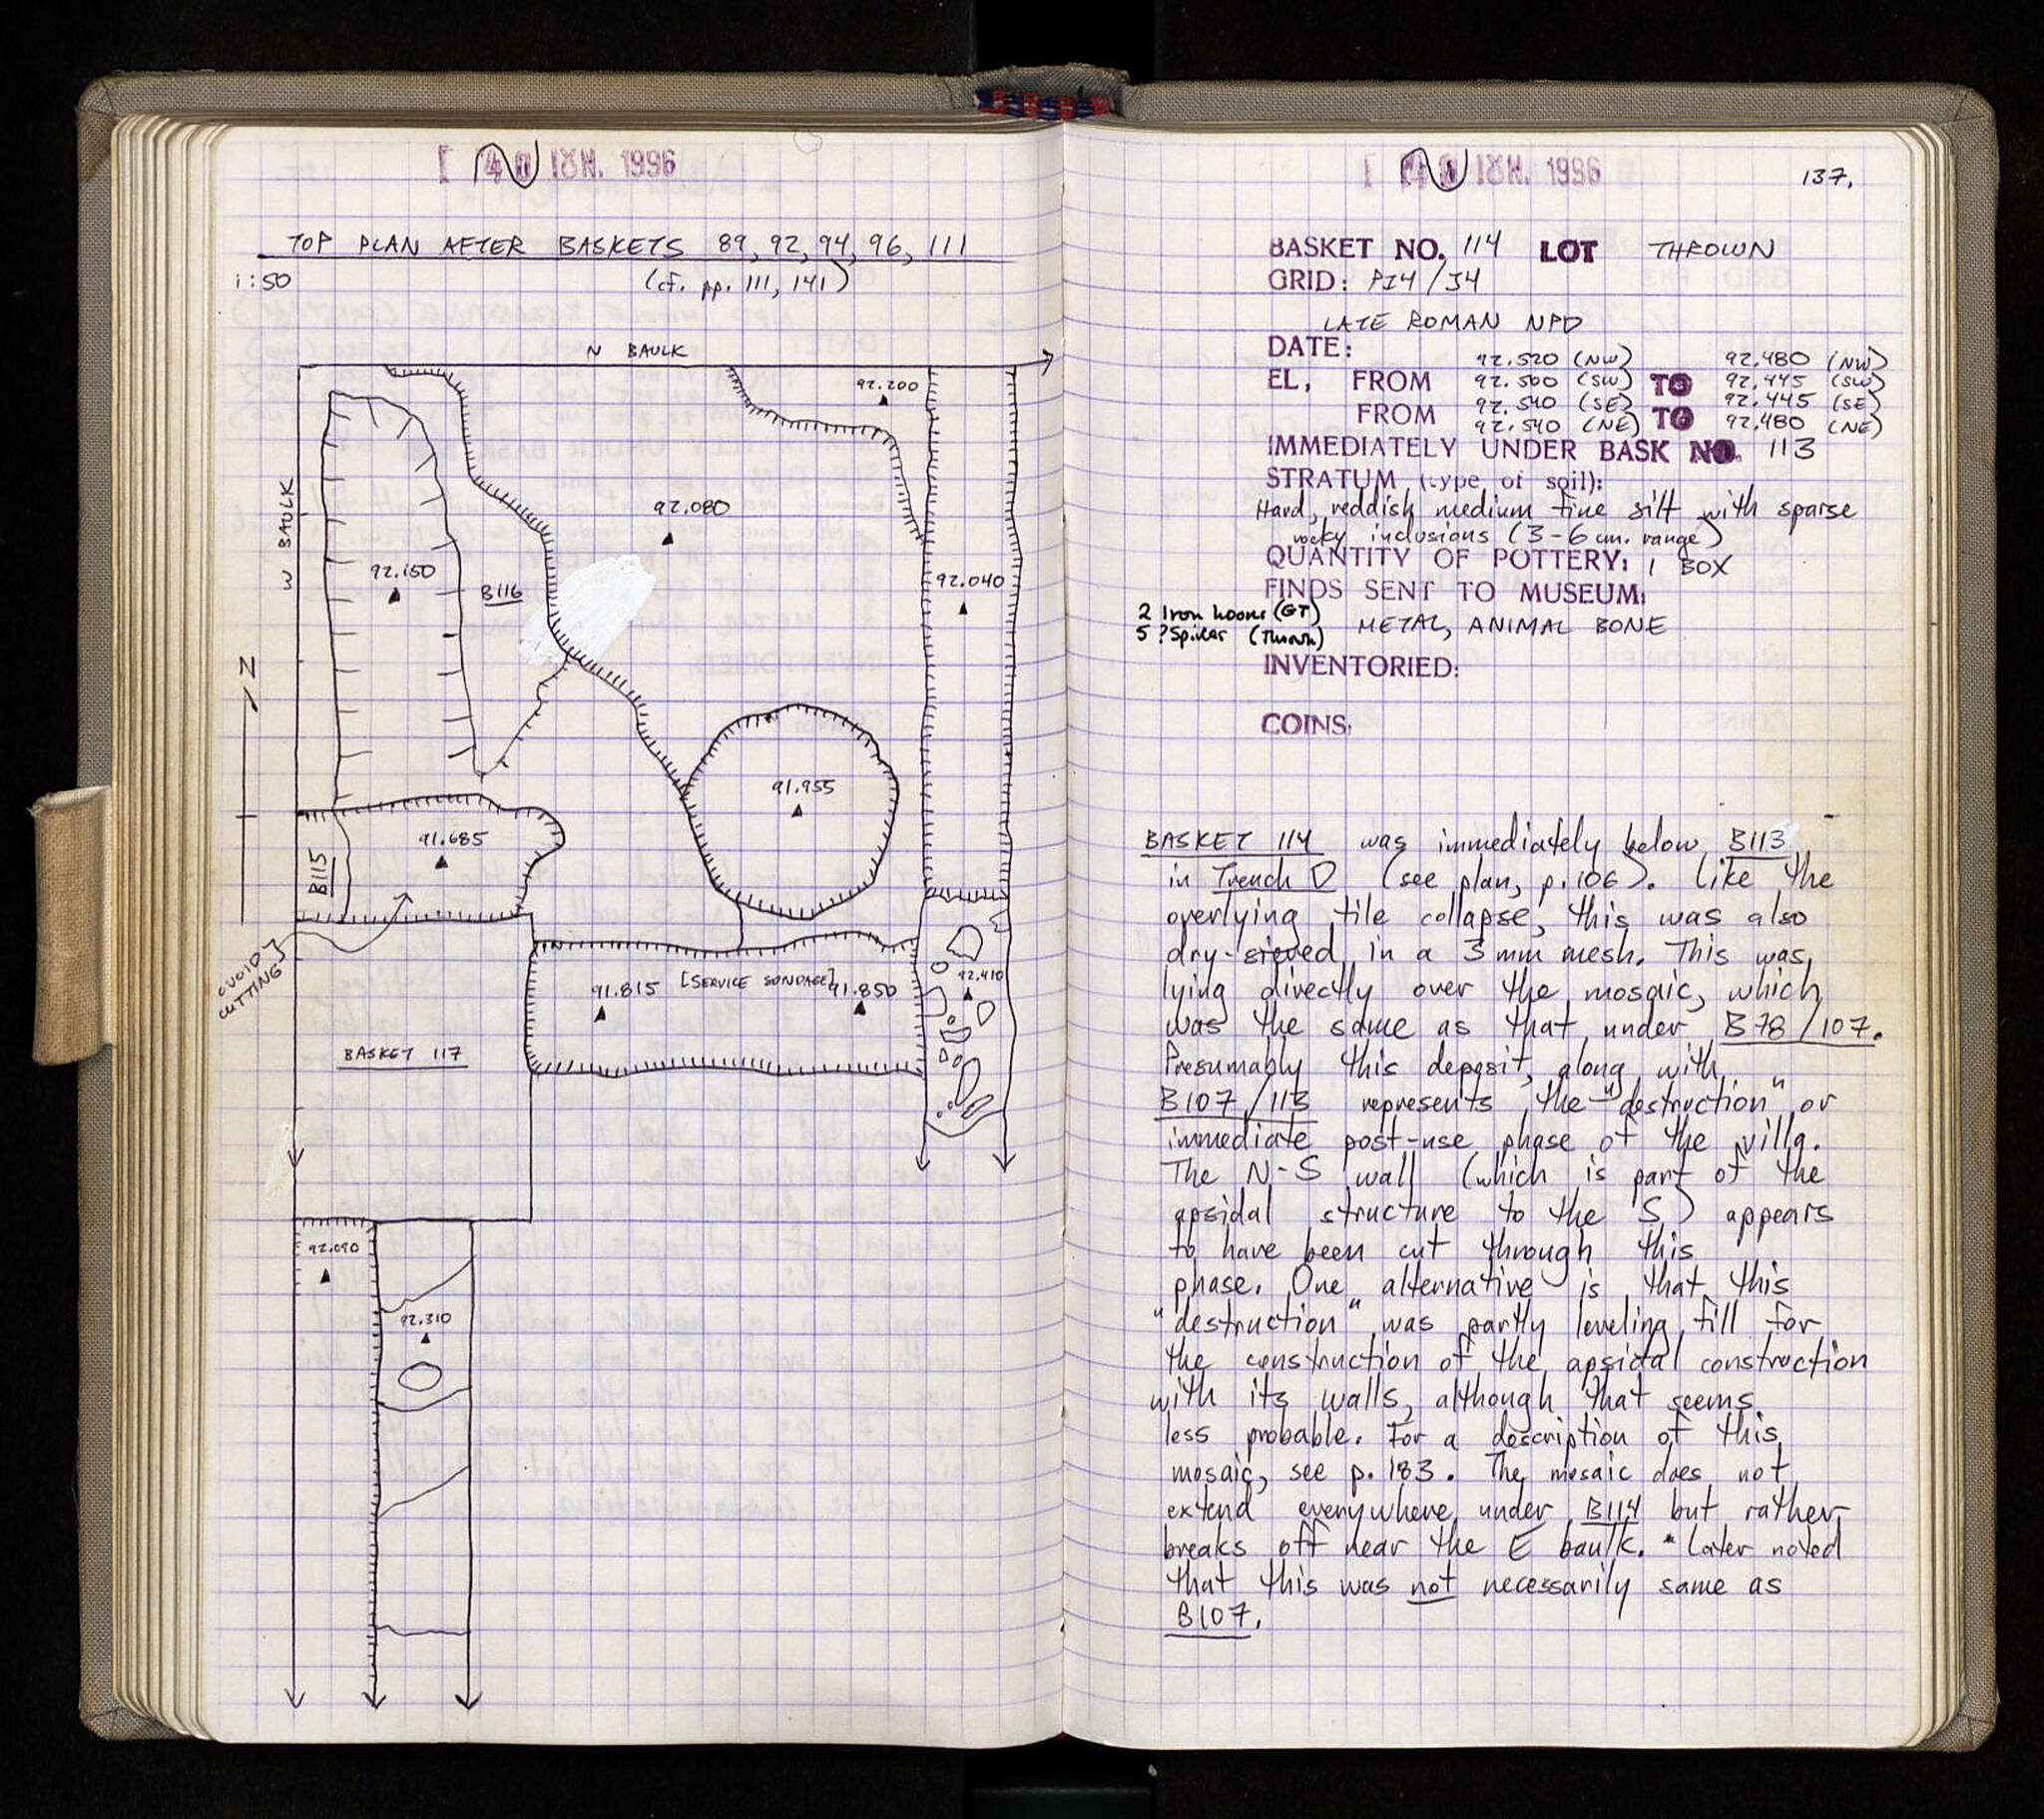 IUN. 1996
TOP PLAN AFTER BASKETS 89, 92, 94, 96, 111
1:50
(cf. pp. 111, 141)
N BAULK
92.200
W BAULK
92.080
92.150
B116
92.040
N
91.955
91.685
B115
OVOID
CUTTING
92.410
91.815 [SERVICE SONDAGE] 91.850
BASKET 117
92.090
92.310
IUN. 1996
137.
BASKET NO. 114 LOT THROWN
GRID: PI4/J4
LATE ROMAN NPD
DATE:
92.520 (NW) 92.480 (NW)
EL, FROM 92.500 (SW) TO 92.445 (SW)
92.540 (SE) 92.445 (SE)
FROM 92.540 (NE) TO 92.480 (NE)
IMMEDIATELY UNDER BASK NO. 113
STRATUM (type of soil):
Hard, reddish medium fine silt with sparse
rocky inclusions (3-6 cm. range)
QUANTITY OF POTTERY: 1 BOX
FINDS SENT TO MUSEUM:
2 Iron hooks (GT)
METAL, ANIMAL BONE
5 ?Spikes
INVENTORIED:
COINS:
BASKET 114 was immediately below B113
in Trench D (see plan, p. 106). Like the
overlying tile collapse, this was also
dry-sieved in a 3 mm mesh. This was
lying directly over the mosaic, which
was the same as that under B78/107.
Presumably this deposit, along with
B107/113 represents the "destruction" or
immediate post-use phase of the villa.
The N-S wall (which is part of the
apsidal structure to the S) appears
to have been cut through this
phase. One alternative is that this
"destruction" was partly leveling fill for
the construction of the apsidal construction
with its walls, although that seems
less probable. For a description of this
mosaic, see p. 183. The mosaic does not
extend everywhere under B114 but rather
breaks off near the E baulk. * Later noted
that this was not necessarily same as
B107.